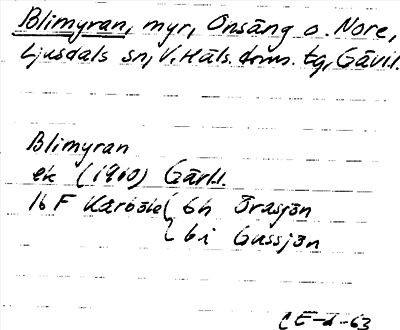 Blimyran, myr, Onsäng o. Nore,
Ljusdals sn, V. Häls. doms. tg, Gävl.
Blimyran
ek (1960) Gävl.
16 F Kårböle { 6h Örasjön
{ 6i Gussjön